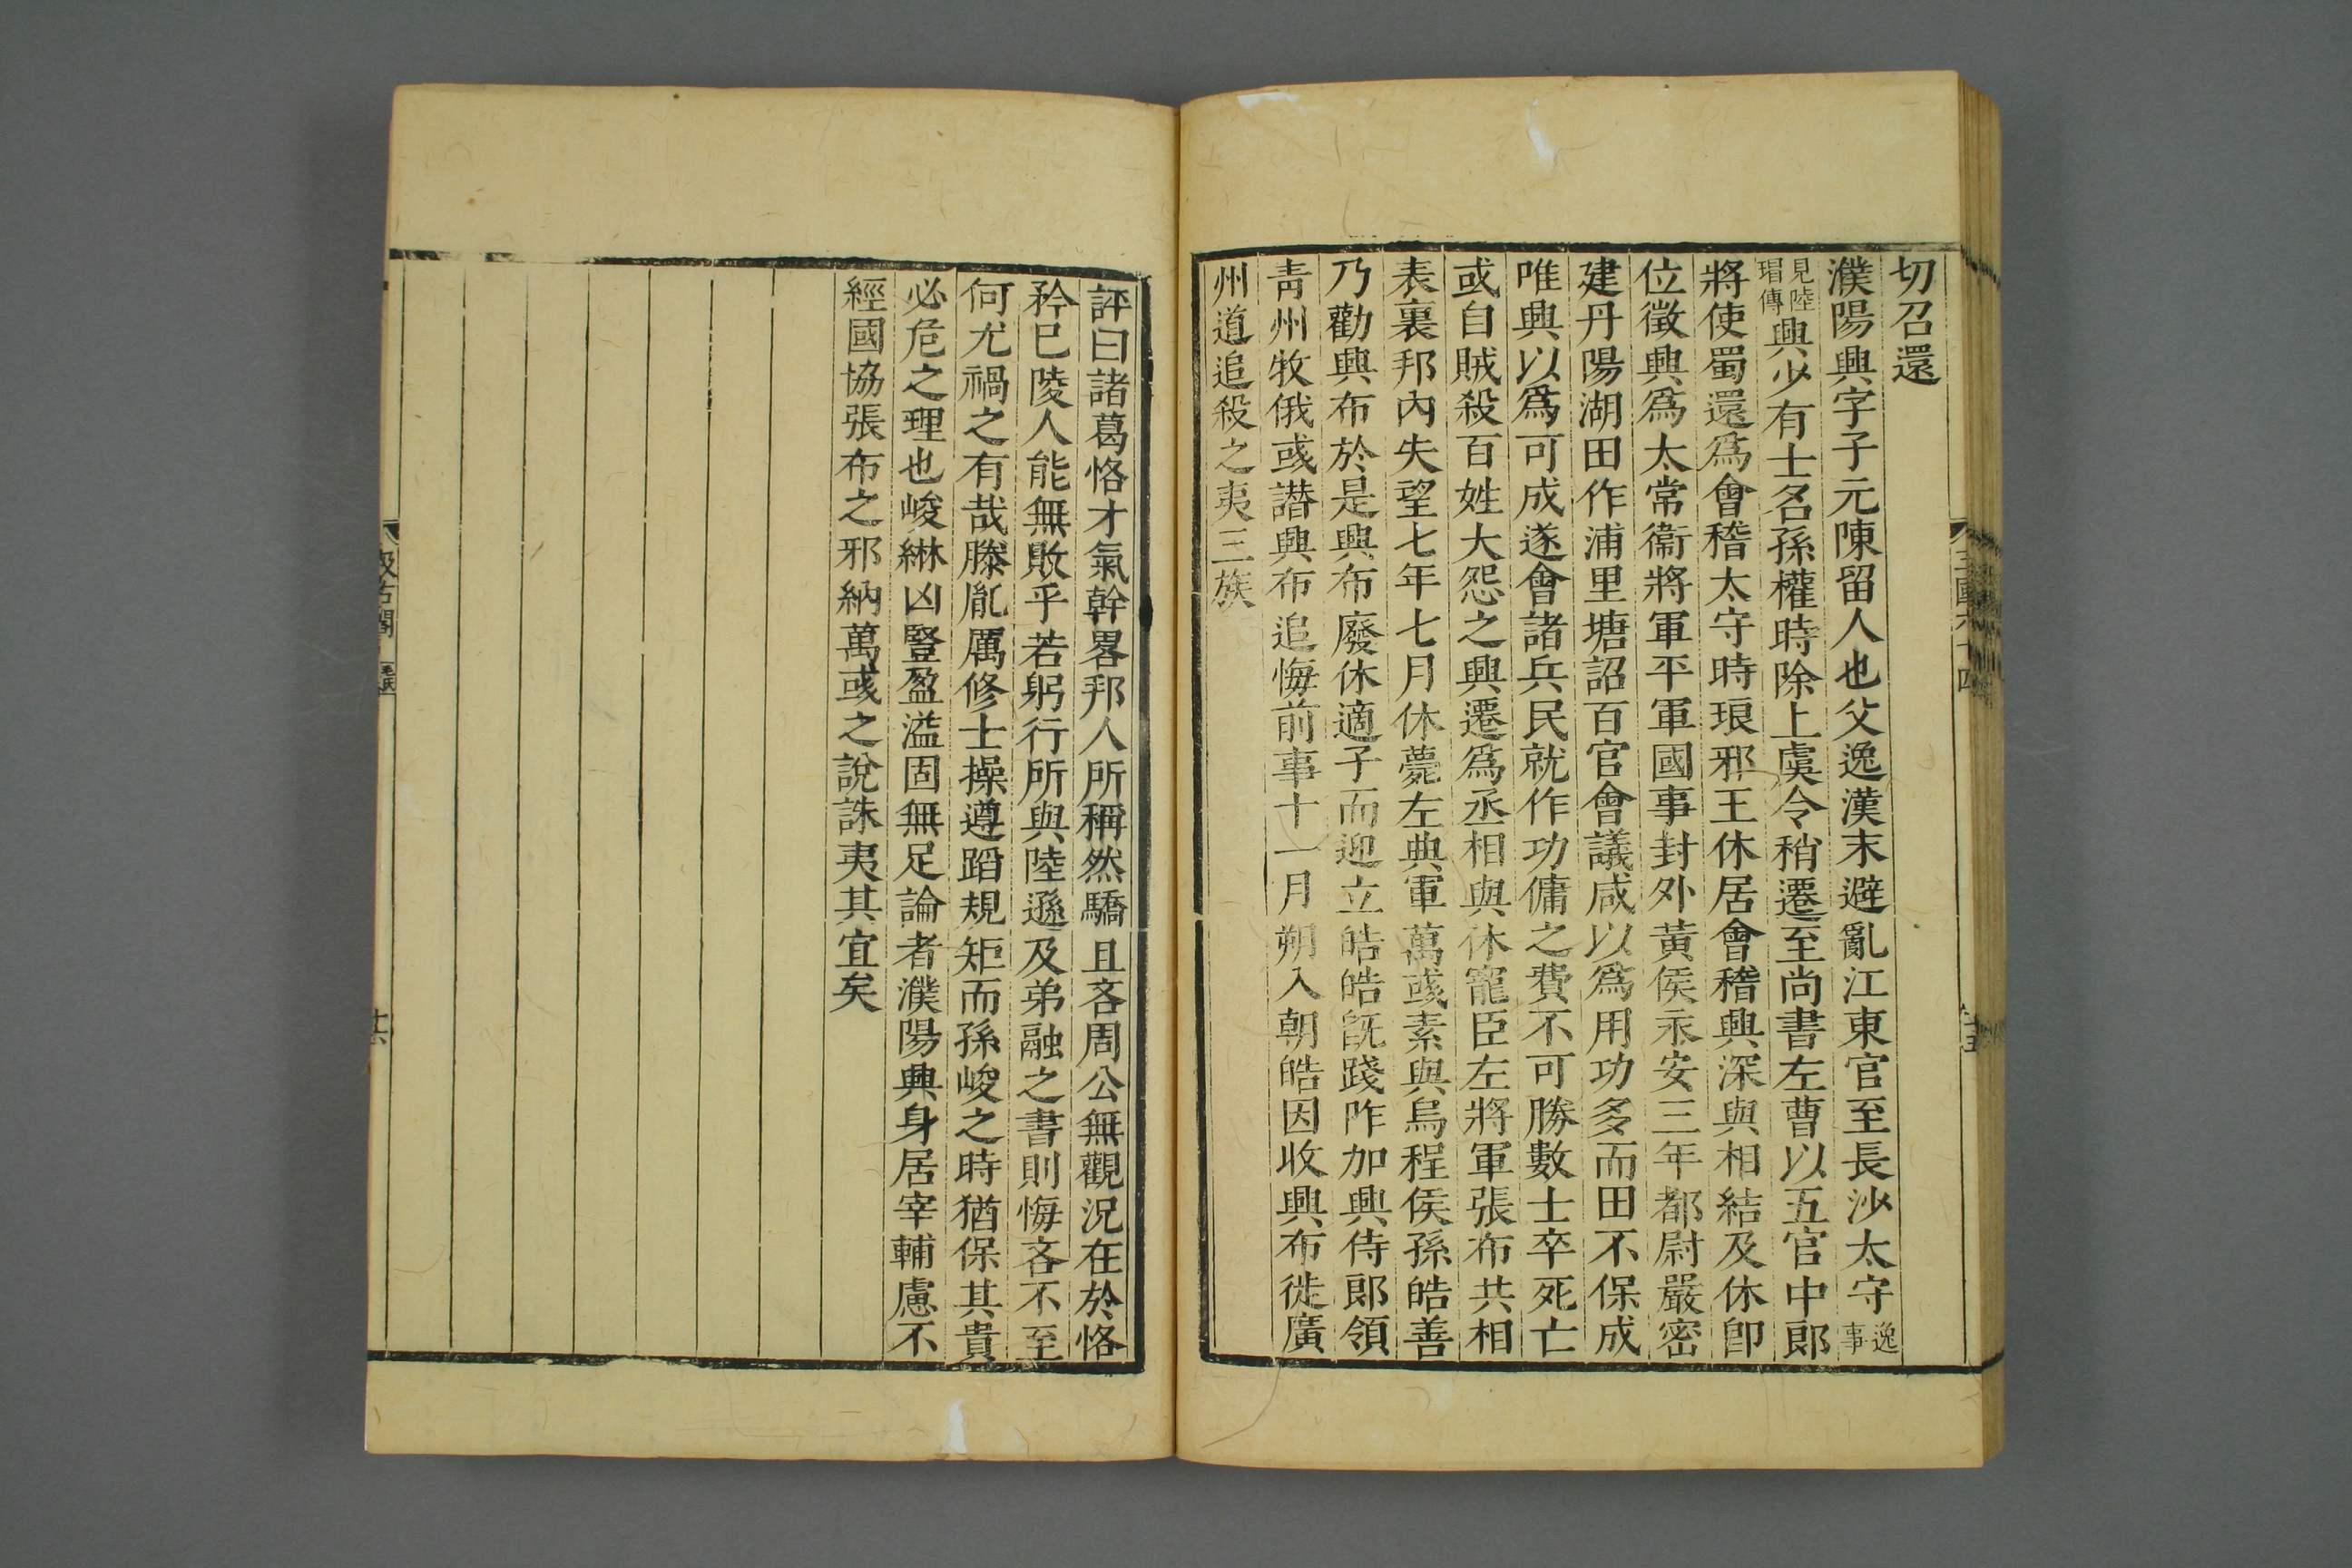 切召還
濮陽興字子元陳留人也父逸漢末避亂江東官至長沙太守逸事
見陸瑁傳興少有士名孫權時除上虞令稍遷至尚書左曹以五官中郎
將使蜀還爲會稽太守時琅邪王休居會稽興深與相結及休卽
位徵興爲太常衞將軍平軍國事封外黃侯永安三年都尉嚴密
建丹陽湖田作浦里塘詔百官會議咸以爲用功多而田不保成
唯興以爲可成遂會諸兵民就作功傭之費不可勝數士卒死亡
或自賊殺百姓大怨之興遷爲丞相與休寵臣左將軍張布共相
表裏邦內失望七年七月休薨左典軍萬彧素與烏程侯孫皓善
乃勸興布於是興布廢休適子而迎立皓皓旣踐阼加興侍郎領
靑州牧俄彧譖興布追悔前事十一月朔入朝皓因收興布徙廣
州道追殺之夷三族
評曰諸葛恪才氣幹畧邦人所稱然驕且吝周公無觀況在於恪
矜己陵人能無敗乎若躬行所與陸遜及弟融之書則悔吝不至
何尤禍之有哉滕胤厲修士操遵蹈規矩而孫峻之時猶保其貴
必危之理也峻綝凶豎盈溢固無足論者濮陽興身居宰輔慮不
經國協張布之邪納萬彧之說誅夷其宜矣